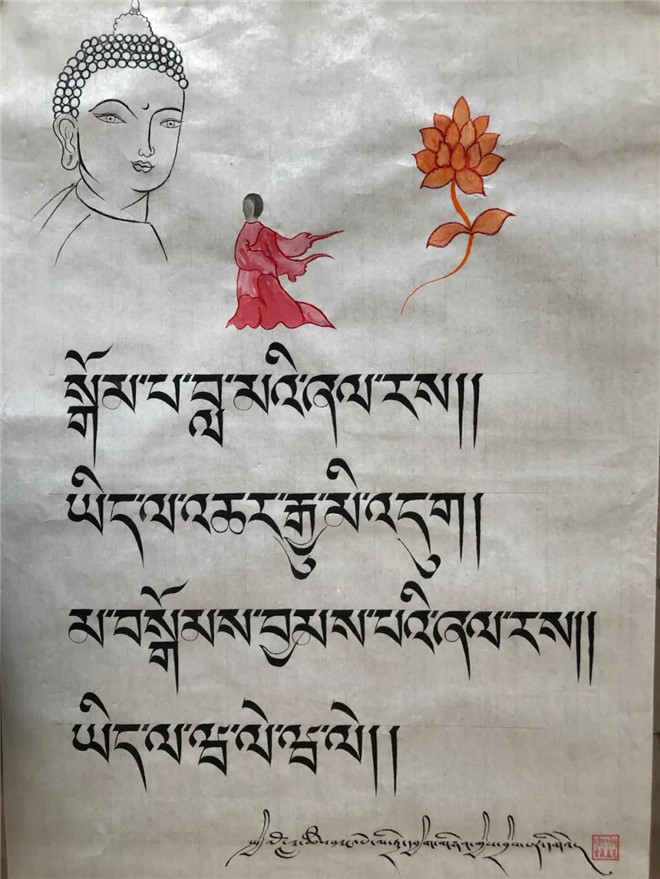 སྒོམ་པ་བླ་མའི་ཞལ་རས།།
ཡིད་ལ་འཆར་རྒྱུ་མི་འདུག།
མ་བསྒོམས་བྱམས་པའི་ཞལ་རས།།
ཡིད་ལ་ཝ་ལེ་ཝ་ལེ།།